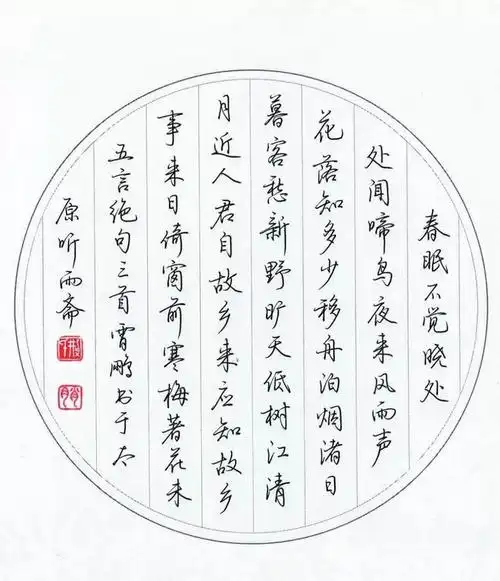 春眠不觉晓处
处闻啼鸟夜来风雨声
花落知多少移舟泊烟渚日
暮客愁新野旷天低树江清
月近人君自故乡来应知故乡
事来日倚窗前寒梅著花未
五言绝句三首霄鹏书于太
原听雨斋